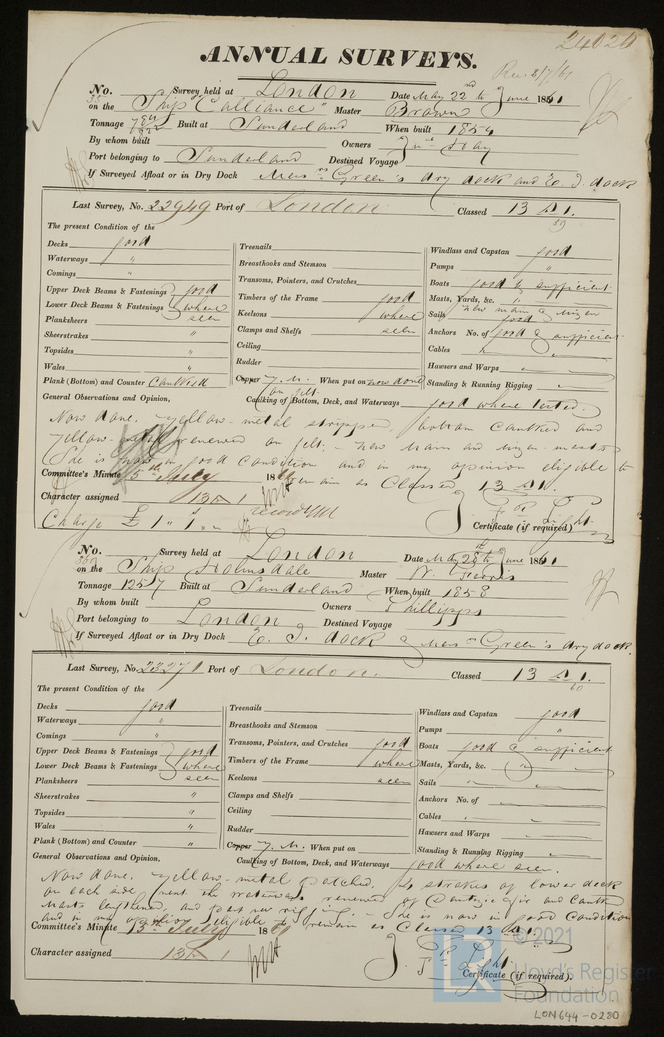 24020
ANNUAL SURVEYS.
Rec. 8/7/61
No. Survey held at London Date May 22nd to June 1861
on the Ship "Calliance" Master Brown
Tonnage Built at Sunderland When built 1854
By whom built Owners Hay
Port belonging to Sunderland Destined Voyage
If Surveyed Afloat or in Dry Dock Messrs Green's dry dock and E. I. dock
Last Survey, No. 22949 Port of London Classed 13 A 1.
59
The present Condition of the
Decks good
Waterways "
Comings "
Upper Deck Beams & Fastenings good
Lower Deck Beams & Fastenings where
Planksheers seen
Sheerstrakes "
Topsides "
Wales "
Plank (Bottom) and Counter Caulked
Treenails
Breasthooks and Stemson
Transoms, Pointers, and Crutches
Timbers of the Frame good
Keelsons where
Clamps and Shelfs seen
Ceiling
Rudder
Copper Y. M. When put on now done
on felt.
Caulking of Bottom, Deck, and Waterways good where tested.
Windlass and Capstan good
Pumps "
Boats good & sufficient
Masts, Yards, &c. "
new main & mizen
Sails good
Anchors No. of good & sufficient
Cables "
Hawsers and Warps "
Standing & Running Rigging "
General Observations and Opinion,
Now done. Yellow-metal stripped, bottom caulked and
yellow-metal renewed on felt; new main and mizen-masts
She is now in good condition and in my opinion eligible to
remain as Classed 13 A 1.
Committee's Minute 5th July 1861
Character assigned 13 A 1
Charge £ 1 " 1 "
Certificate (if required)
No. Survey held at London Date May 28th to June 1861
on the Ship Holmsdale Master
Tonnage 1257 Built at Sunderland When built 1858
By whom built Owners Phillipps
Port belonging to London Destined Voyage
If Surveyed Afloat or in Dry Dock E. I. dock & Messrs Green's dry dock.
Last Survey, No. 23271 Port of London. Classed 13 A 1.
60
The present Condition of the
Decks good
Waterways "
Comings "
Upper Deck Beams & Fastenings good
Lower Deck Beams & Fastenings where
Planksheers seen
Sheerstrakes "
Topsides "
Wales "
Plank (Bottom) and Counter "
Treenails
Breasthooks and Stemson
Transoms, Pointers, and Crutches good
Timbers of the Frame where
Keelsons seen
Clamps and Shelfs
Ceiling
Rudder
Copper Y. M. When put on
Caulking of Bottom, Deck, and Waterways good where seen.
Windlass and Capstan good
Pumps "
Boats good & sufficient
Masts, Yards, &c.
Sails "
Anchors No. of
Cables "
Hawsers and Warps "
Standing & Running Rigging "
General Observations and Opinion,
Now done. Yellow-metal patched. 4 strakes of lower deck
on each side next the waterways renewed of and caulked
Masts lengthened, and new rigging. She is now in good condition
and in my opinion eligible to remain as Classed 13 A 1.
Committee's Minute July 18
Character assigned 13 A 1
Certificate (if required).
© 2021
LR
Lloyd's Register
Foundation
LON644-0280